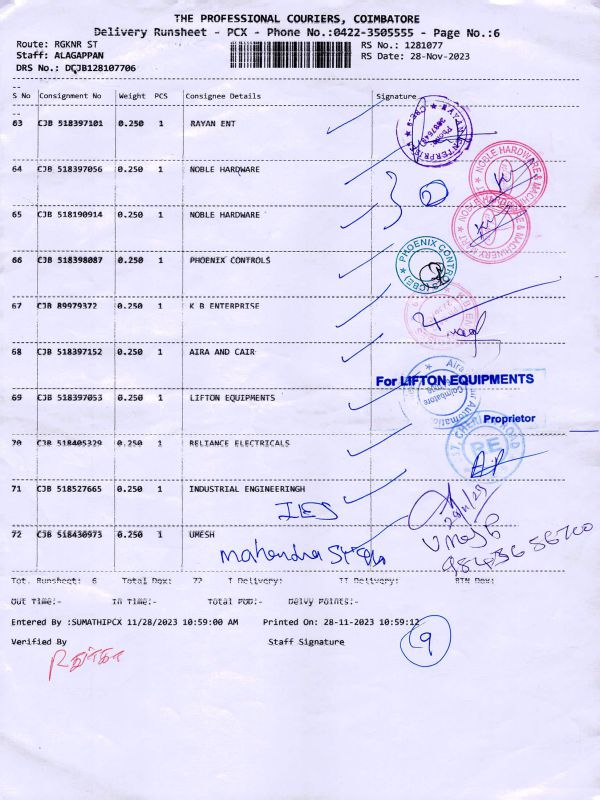 THE PROFESSIONAL COURIERS, COIMBATORE
Delivery Runsheet - PCX - Phone No.:0422-3505555 - Page No.:6
Route: RGKNR ST RS No.: 1281077
Staff: ALAGAPPAN RS Date: 28-Nov-2023
DRS No.: DCJB128107706
S No Consignment No Weight PCS Consignee Details Signature
63 CJB 518397101 0.250 1 RAYAN ENT
64 CJB 518397056 0.250 1 NOBLE HARDWARE
2
65 CJB 518190914 0.250 1 NOBLE HARDWARE
66 CJB 518398087 0.250 1 PHOENIX CONTROLS
PHOENIX CONTROLS (CBE)
67 CJB 89979372 0.250 1 K B ENTERPRISE
68 CJB 518397152 0.250 1 AIRA AND CAIR
For LIFTON EQUIPMENTS
69 CJB 518397053 0.250 1 LIFTON EQUIPMENTS
Coimbatore
Proprietor
70 CJB 518405329 0.250 1 RELIANCE ELECTRICALS
PE
71 CJB 518527665 0.250 1 INDUSTRIAL ENGINEERINGH
IES
72 CJB 518430973 0.250 1 UMESH
Umesh
Mahendra
Tot. Runsheet: 6 Total Box: 72 I Delivery: II Delivery: RTN Box:
Out Time:- In Time:- Total POD:- Delvy Points:-
Entered By :SUMATHIPCX 11/28/2023 10:59:00 AM Printed On: 28-11-2023 10:59:12
Verified By Staff Signature
9